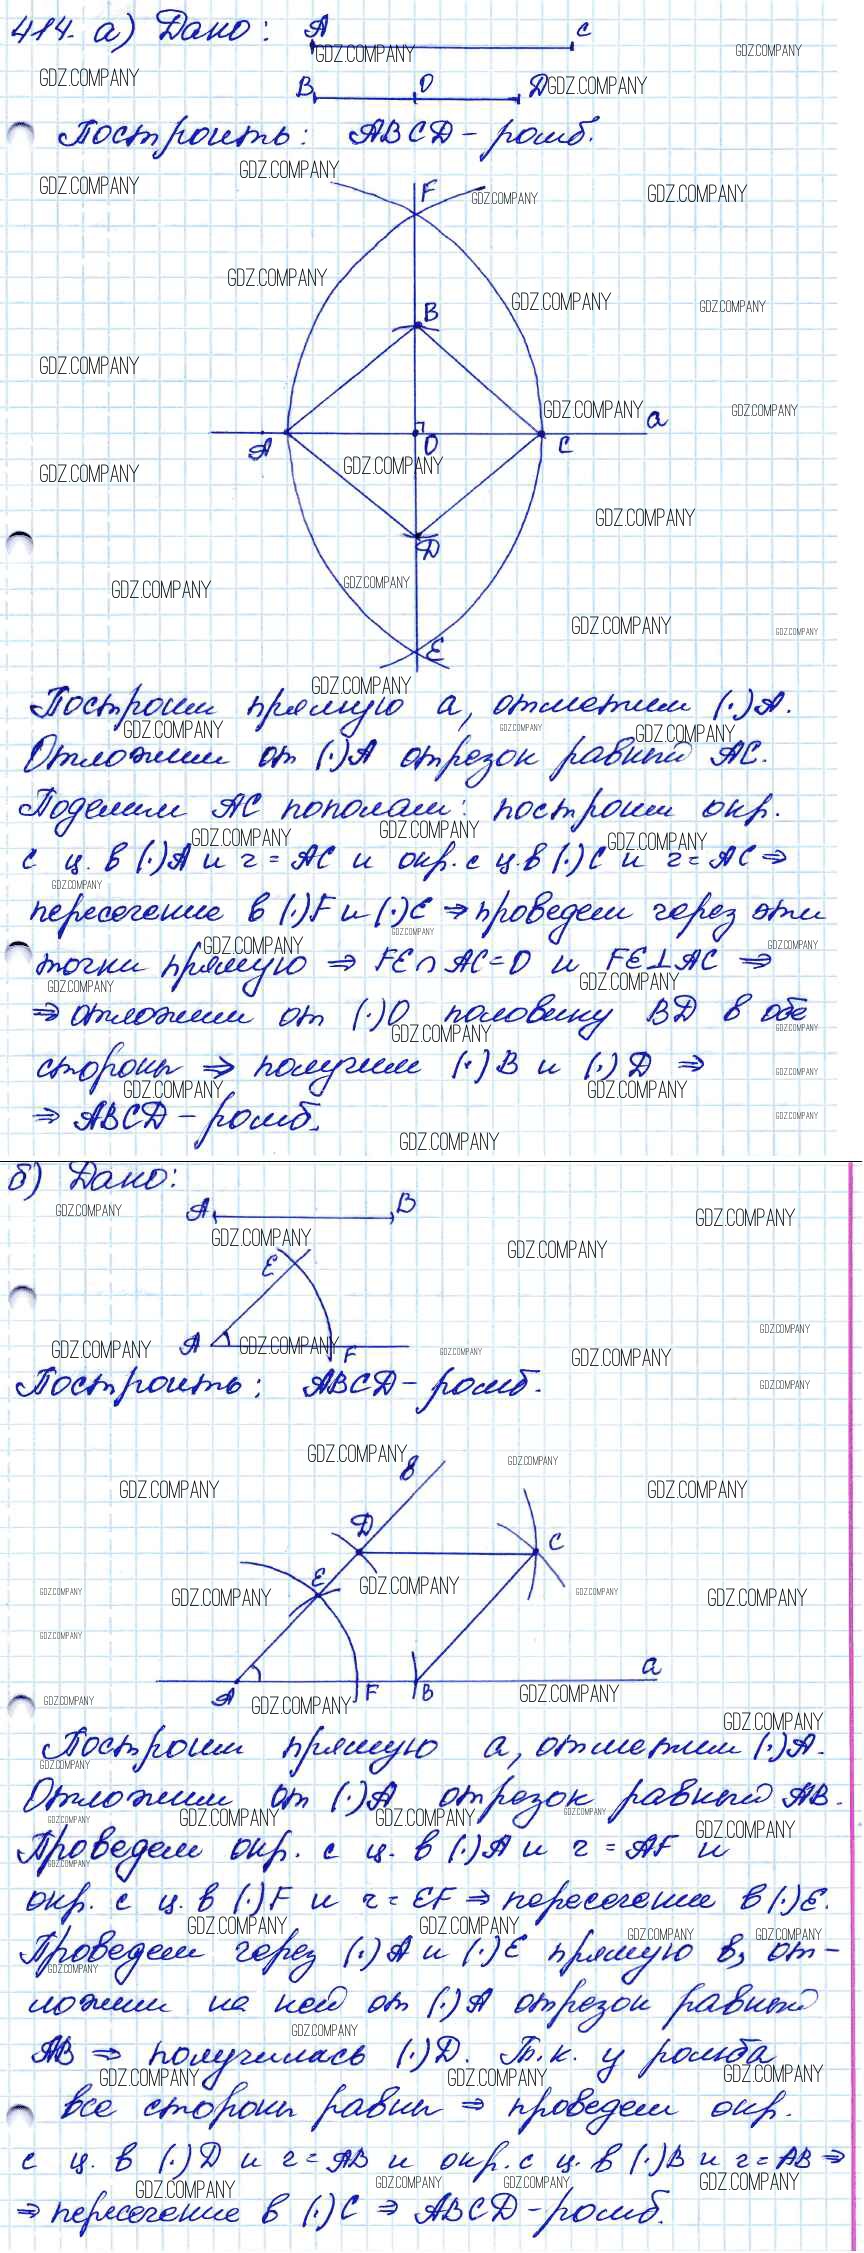 414. а) Дано: A C
B O D
Построить: ABCD - ромб.
F
B
A O C a
D
E
Построим прямую a, отметим (·)A.
Отложим от (·)A отрезок равный AC.
Поделим AC пополам: построим окр.
с ц. в (·)A и r = AC и окр. с ц. в (·)C и r = AC ⇒
пересечение в (·)F и (·)E ⇒ проведем через эти
точки прямую ⇒ FE ∩ AC = O и FE ⊥ AC ⇒
⇒ отложим от (·)O половину BD в обе
стороны ⇒ получим (·)B и (·)D ⇒
⇒ ABCD - ромб.
б) Дано:
A B
E
A F
Построить: ABCD - ромб.
в
D C
E
A F B a
Построим прямую a, отметим (·)A.
Отложим от (·)A отрезок равный AB.
Проведем окр. с ц. в (·)A и r = AF и
окр. с ц. в (·)F и r = EF ⇒ пересечение в (·)E.
Проведем через (·)A и (·)E прямую в, от-
ложим на ней от (·)A отрезок равный
AB ⇒ получилась (·)D. Т.к. у ромба
все стороны равны ⇒ проведем окр.
с ц. в (·)D и r = AB и окр. с ц. в (·)B и r = AB ⇒
⇒ пересечение в (·)C ⇒ ABCD - ромб.
GDZ.COMPANY